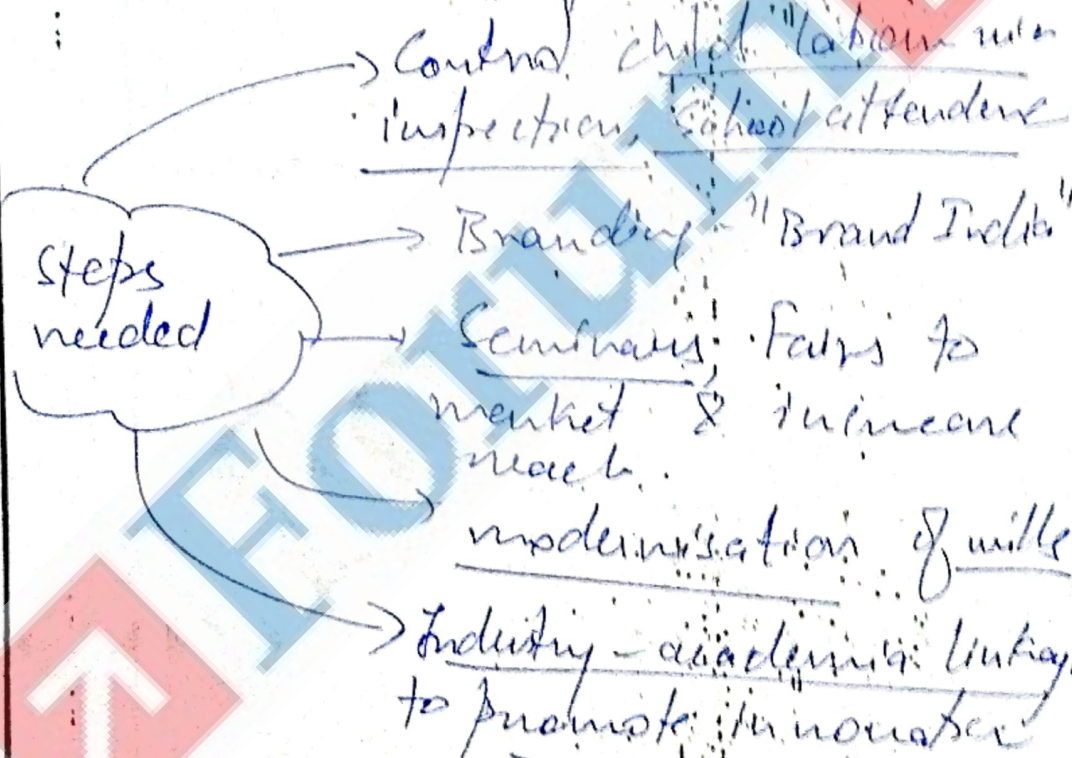 Control child labour via
inspection, School attendence
Branding - "Brand India"
Steps
needed
Seminars, Fairs to
market & increase
reach.
modernisation of mills
Industry - academia linkag
to promote innovation
Forum